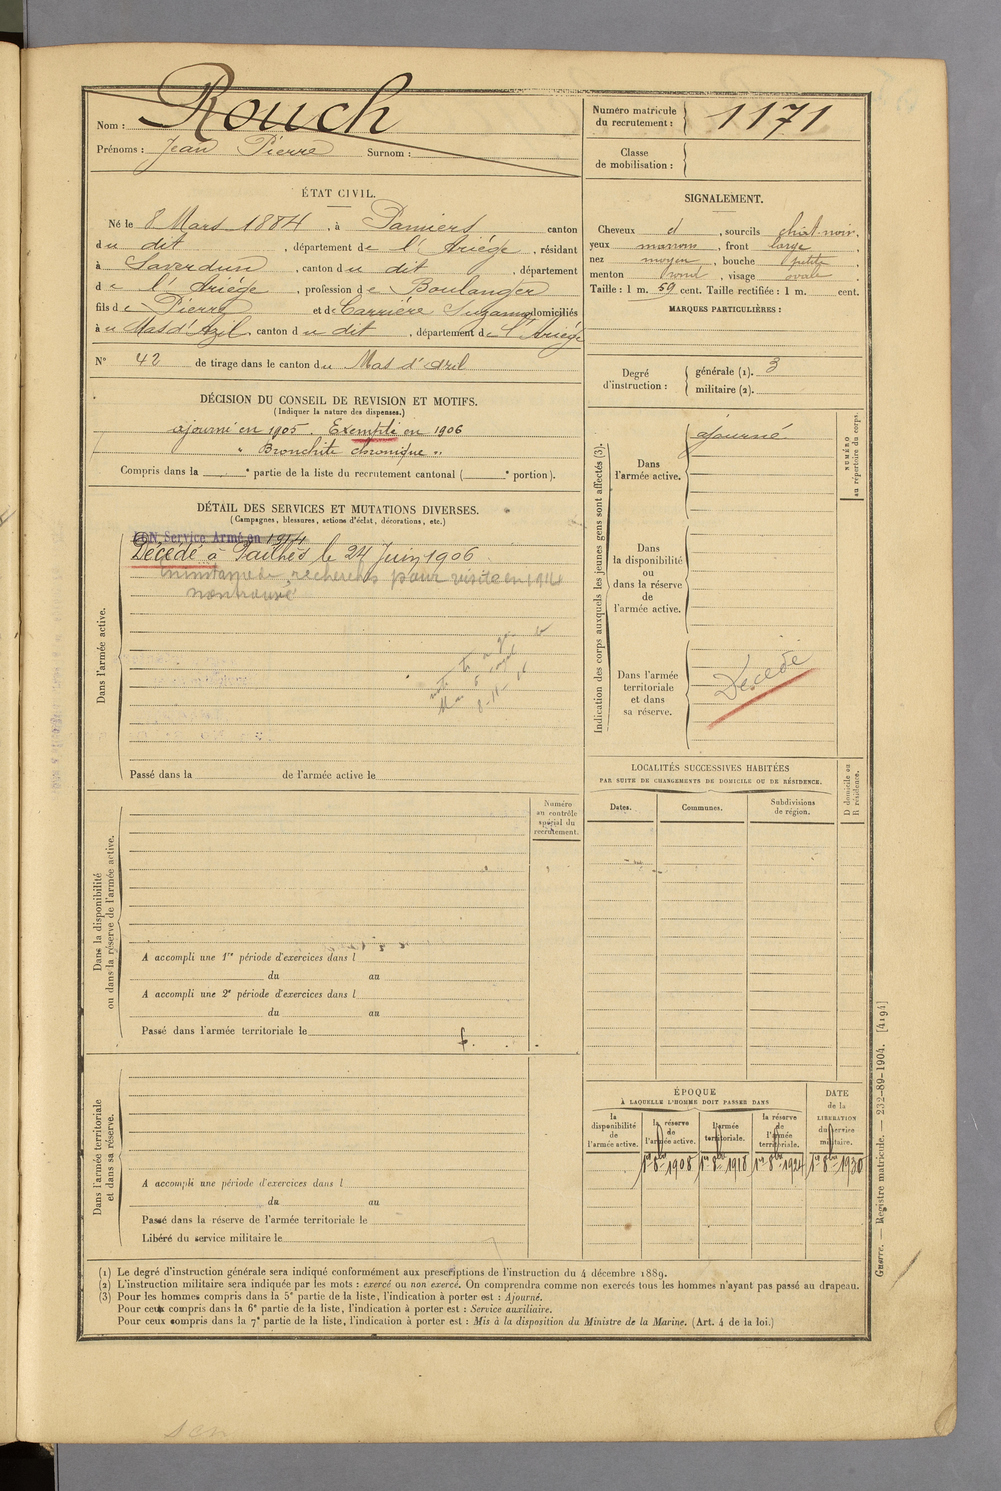 Nom : Rouch
Prénoms : Jean Pierre Surnom :
Numéro matricule du recrutement : 1171
Classe de mobilisation :
ÉTAT CIVIL.
Né le 8 Mars 1884, à Pamiers canton
du dit, département de l'Ariége, résidant
à Saverdun, canton du dit, département
de l'Ariége, profession de Boulanger
fils de Pierre et de Carriére Suzanne domiciliés
à u Mas d'Azil canton du dit, département de l'Ariége
N° 42 de tirage dans le canton du Mas d'Azil
SIGNALEMENT.
Cheveux d, sourcils chat-noir,
yeux marrons, front large,
nez moyen, bouche petite,
menton rond, visage ovale.
Taille : 1 m. 59 cent. Taille rectifiée : 1 m. cent.
MARQUES PARTICULIÈRES :
Degré d'instruction :
générale (1). 3
militaire (2).
DÉCISION DU CONSEIL DE REVISION ET MOTIFS.
(Indiquer la nature des dispenses.)
ajourné en 1905. Exempté en 1906
" Bronchite chronique "
Compris dans la e partie de la liste du recrutement cantonal ( e portion).
DÉTAIL DES SERVICES ET MUTATIONS DIVERSES.
(Campagnes, blessures, actions d'éclat, décorations, etc.)
Dans l'armée active.
BON Service Armé en 1914
Décédé à Pailhès le 24 Juin 1906
recherches pour visite en 1914
non trouvé
Passé dans la de l'armée active le
Indication des corps auxquels les jeunes gens sont affectés (3).
NUMÉRO au répertoire du corps.
Dans l'armée active.
ajourné
Dans la disponibilité ou dans la réserve de l'armée active.
Dans l'armée territoriale et dans sa réserve.
Décédé
LOCALITÉS SUCCESSIVES HABITÉES
PAR SUITE DE CHANGEMENTS DE DOMICILE OU DE RÉSIDENCE.
D domicile ou R résidence.
Dates. Communes. Subdivisions de région.
Dans la disponibilité ou dans la réserve de l'armée active.
Numéro au contrôle spécial du recrutement.
A accompli une 1re période d'exercices dans l
du au
A accompli une 2e période d'exercices dans l
du au
Passé dans l'armée territoriale le
Dans l'armée territoriale et dans sa réserve.
A accompli une période d'exercices dans l
du au
Passé dans la réserve de l'armée territoriale le
Libéré du service militaire le
ÉPOQUE
À LAQUELLE L'HOMME DOIT PASSER DANS
DATE de la LIBÉRATION du service militaire.
la disponibilité de l'armée active.
la réserve de l'armée active.
l'armée territoriale.
la réserve de l'armée territoriale.
1er 8bre 1908 1er 8bre 1918 1er 8bre 1924 1er 8bre 1930
(1) Le degré d'instruction générale sera indiqué conformément aux prescriptions de l'instruction du 4 décembre 1889.
(2) L'instruction militaire sera indiquée par les mots : exercé ou non exercé. On comprendra comme non exercés tous les hommes n'ayant pas passé au drapeau.
(3) Pour les hommes compris dans la 5e partie de la liste, l'indication à porter est : Ajourné.
Pour ceux compris dans la 6e partie de la liste, l'indication à porter est : Service auxiliaire.
Pour ceux compris dans la 7e partie de la liste, l'indication à porter est : Mis à la disposition du Ministre de la Marine. (Art. 4 de la loi.)
Guerre. — Registre matricule. — 232-89-1904. [4194]